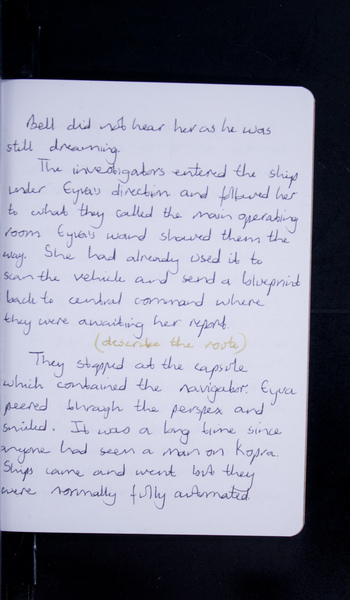 Bell did not hear her as he was
still dreaming.
The investigators entered the ship
under Eyva's direction and followed her
to what they called the main operating
room. Eyva's wand showed them the
way. She had already used it to
scan the vehicle and send a blueprint
back to central command where
they were awaiting her report.
(describe the route)
They stopped at the capsule
which contained the navigator. Eyva
peered through the perspex and
smiled. It was a long time since
anyone had seen a man on Kopra.
Ships came and went but they
were normally fully automated